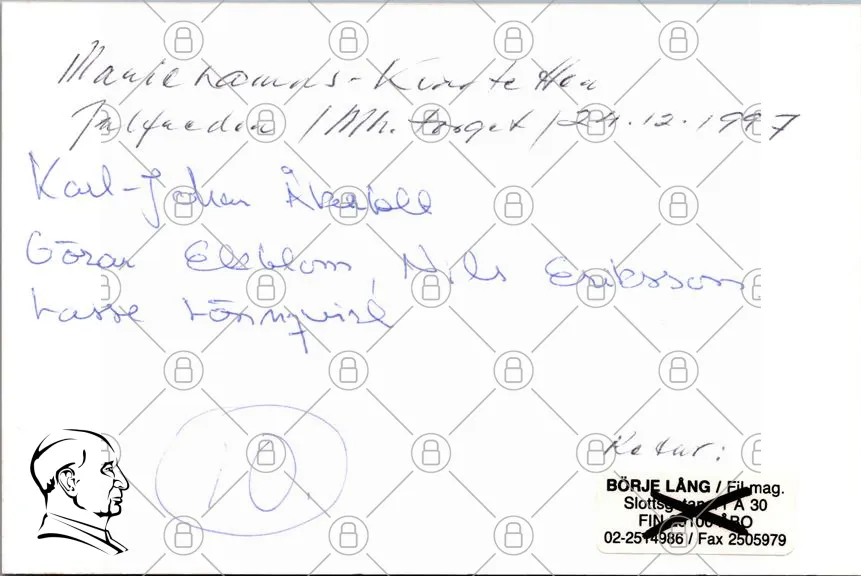 Manskelaurns-Kvartetten
Julfreden / Mh. torget / 24.12.1997
Karl-Johan Åkerfelt
Göran Ekblom, Nils Eriksson
Lasse Lönnqvist
10
Retur:
BÖRJE LÅNG / Fil.mag.
Slottsgatan A 30
FIN 20100 ÅBO
02-2514986 / Fax 2505979